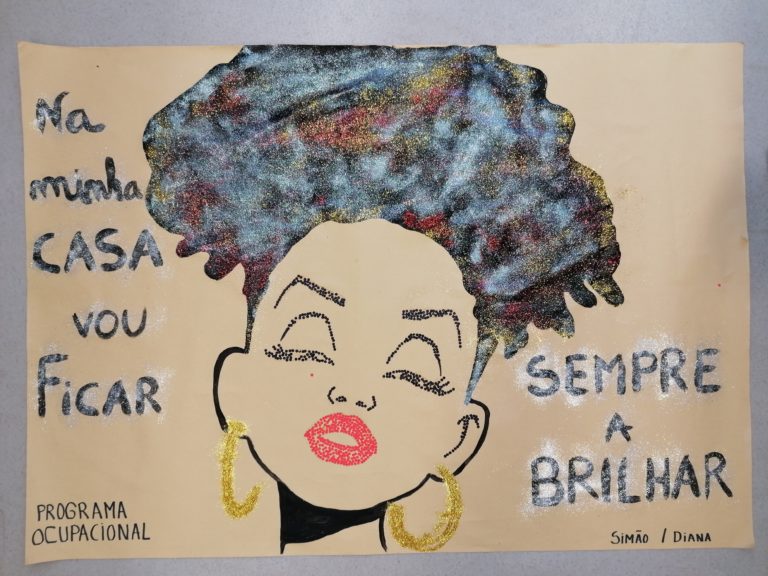 Na
minha
CASA
VOU
FICAR
SEMPRE
A
BRILHAR
PROGRAMA
OCUPACIONAL
SIMÃO / DIANA